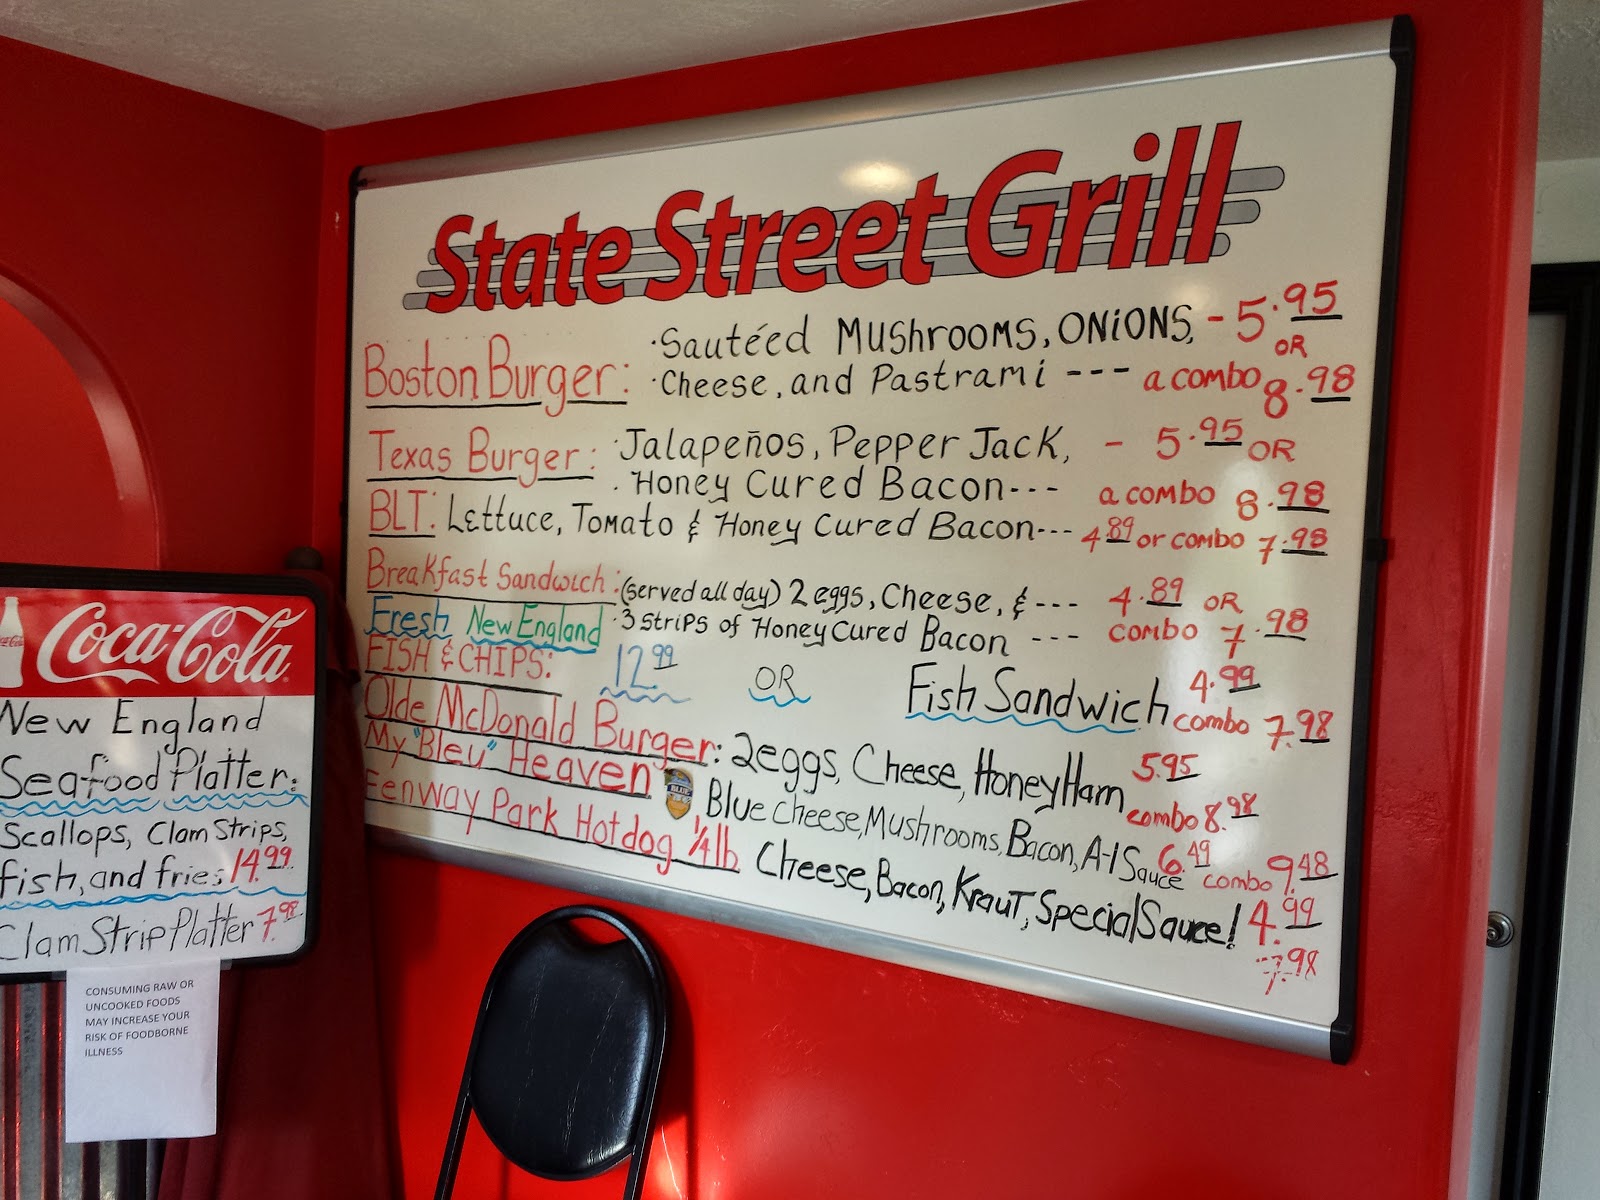 State Street Grill
Boston Burger: ·Sautéed Mushrooms, Onions, - 5.95
OR
·Cheese, and Pastrami --- a combo 8.98
Texas Burger: ·Jalapeños, Pepper Jack, - 5.95 OR
·Honey Cured Bacon--- a combo 8.98
BLT: Lettuce, Tomato & Honey Cured Bacon--- 4.89 or combo 7.98
Breakfast Sandwich: (served all day) 2 eggs, Cheese, &--- 4.89 OR
·3 strips of Honey Cured Bacon --- combo 7.98
Fresh New England
FISH & CHIPS: 12.99 OR Fish Sandwich 4.99
combo 7.98
Olde McDonald Burger: 2eggs, Cheese, Honey Ham 5.95
combo 8.98
My "Bleu" Heaven BLUE, Blue Cheese, Mushrooms, Bacon, A-1 Sauce 6.49 combo 9.48
Fenway Park Hotdog 1/4 lb. Cheese, Bacon, Kraut, Special Sauce! 4.99
7.98
Coca-Cola
New England
Seafood Platter:
Scallops, Clam Strips,
fish, and fries 14.99
Clam Strip Platter 7.98
CONSUMING RAW OR
UNCOOKED FOODS
MAY INCREASE YOUR
RISK OF FOODBORNE
ILLNESS